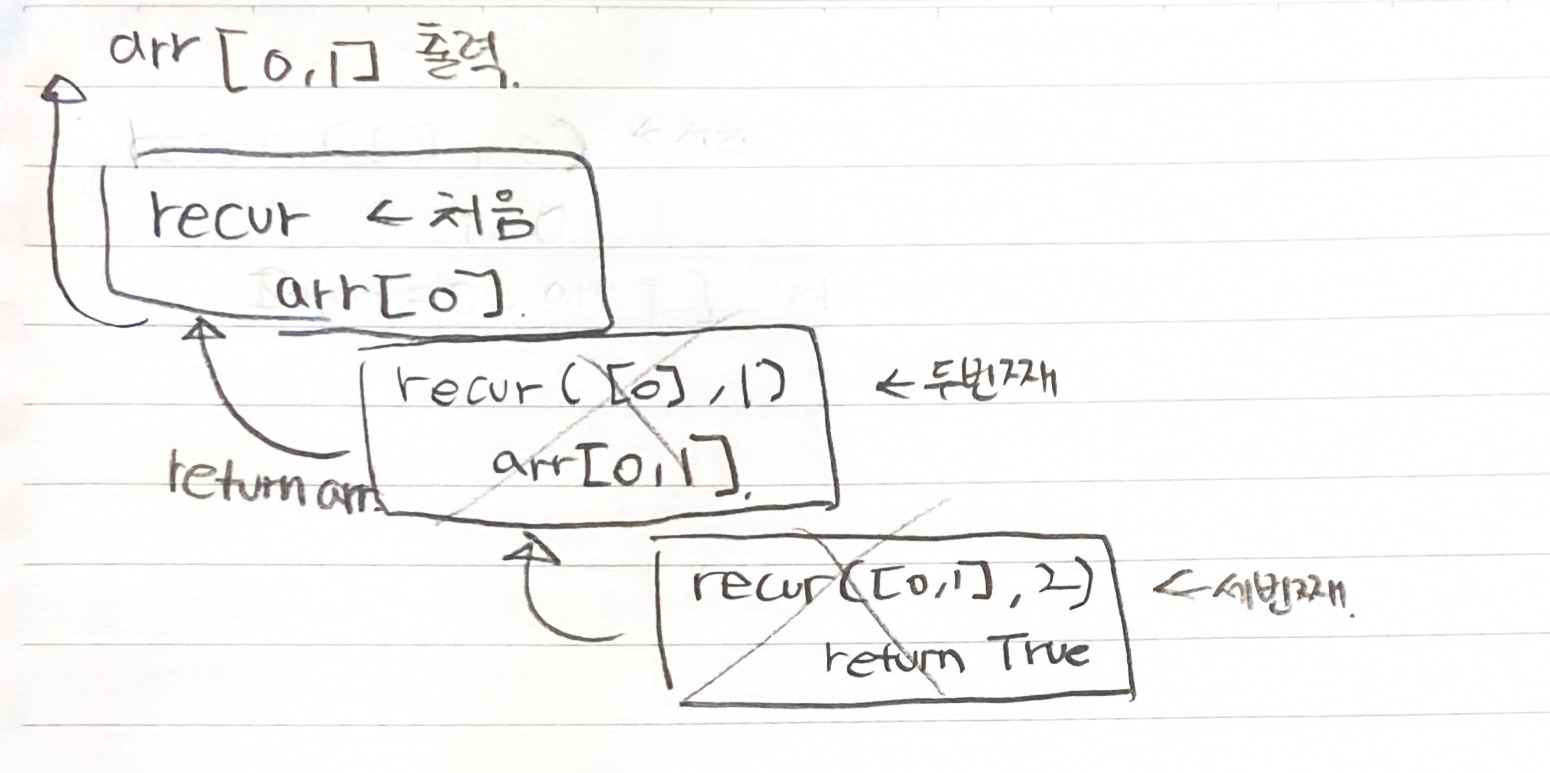 arr [0,1] 출력.
recur ← 처음
arr[0].
recur([0],1) ← 두번쨰
arr[0,1].
return arr.
recur([0,1],2) ← 세번쨰.
return True